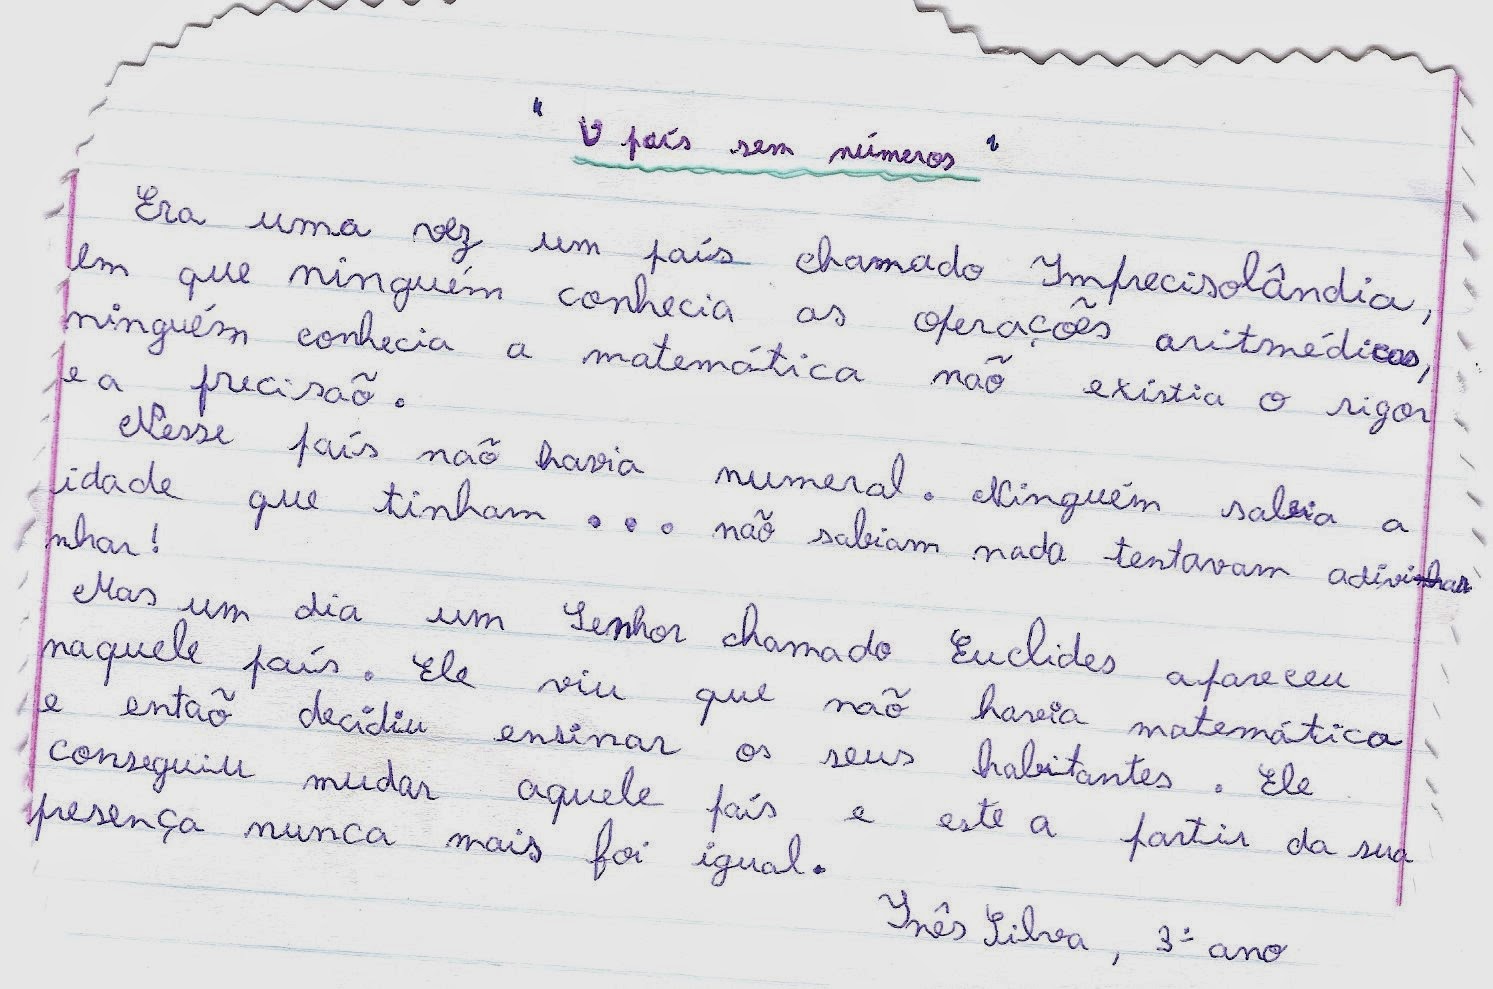 " O país sem números "
Era uma vez um país chamado Imprecisolândia,
em que ninguém conhecia as operações aritmédicas,
ninguém conhecia a matemática naõ existia o rigor
e a precisaõ.
Nesse país naõ havia numeral. Ninguém sabia a
idade que tinham... naõ sabiam nada tentavam adivinhar
nhar!
Mas um dia um Senhor chamado Euclides apareceu
naquele país. Ele viu que naõ havia matemática
e entaõ decidiu ensinar os seus habitantes. Ele
conseguiu mudar aquele país e este a partir da sua
presença nunca mais foi igual.
Inês Silva, 3º ano